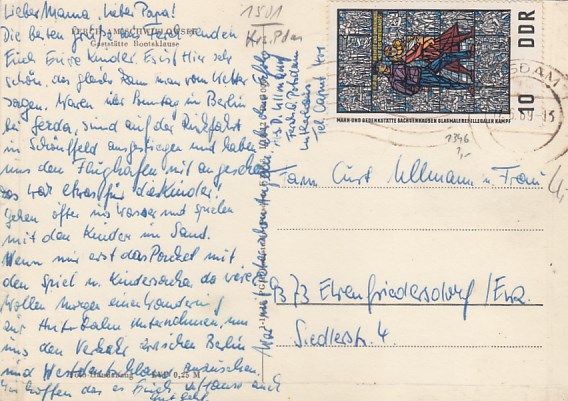 Lieber Mama, lieber Papa!
Die besten Grüße senden
Euch Eure Kinder. Es ist hier sehr
schön, das gleiche kann man vom Wetter
sagen. Waren über Sonntag in Berlin
bei Gerda, sind auf der Rückfahrt
in Schönefeld ausgestiegen und haben
uns den Flughafen mit angesehen
Das war etwas für die Kinder,
gehen öfter ins Wasser und spielen
mit den Kinder im Sand.
Wenn nur erst das Packet mit
den Spiel u. Kindersachen da wäre
Wollen morgen eine Wanderung
zur Autobahn unternehmen, um
uns den Verkehr zwischen Berlin
und Westdeutschland anzusehen.
Wir hoffen das es Euch zuhause auch
gut geht.
FERCH AM SCHWIELOWSEE
Gaststätte Bootsklause
0,25 M
z. Z. Ullmann
Ferch b. Potsdam
1501
Krs. Pdm
DDR
10
MAHN UND GEDENKSTÄTTE SACHSENHAUSEN GLASMALEREI
POTSDAM
69-15
1346
1,-
4,-
Fam. Curt Ullmann u. Frau
9373 Ehrenfriedersdorf/Erz.
Siedlerstr. 4.